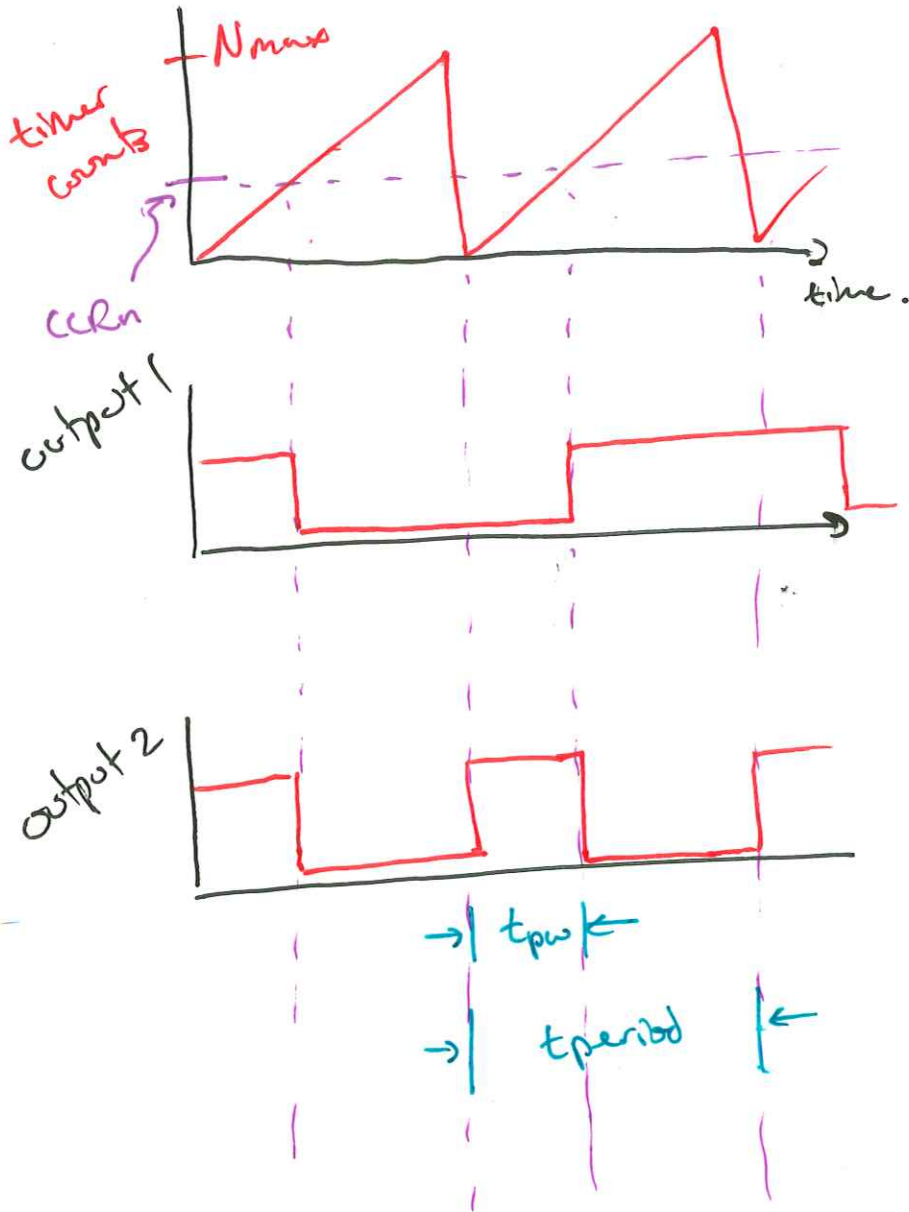 Nmax
timer
counts
CCRn
time.
output 1
output 2
tpw
tperiod